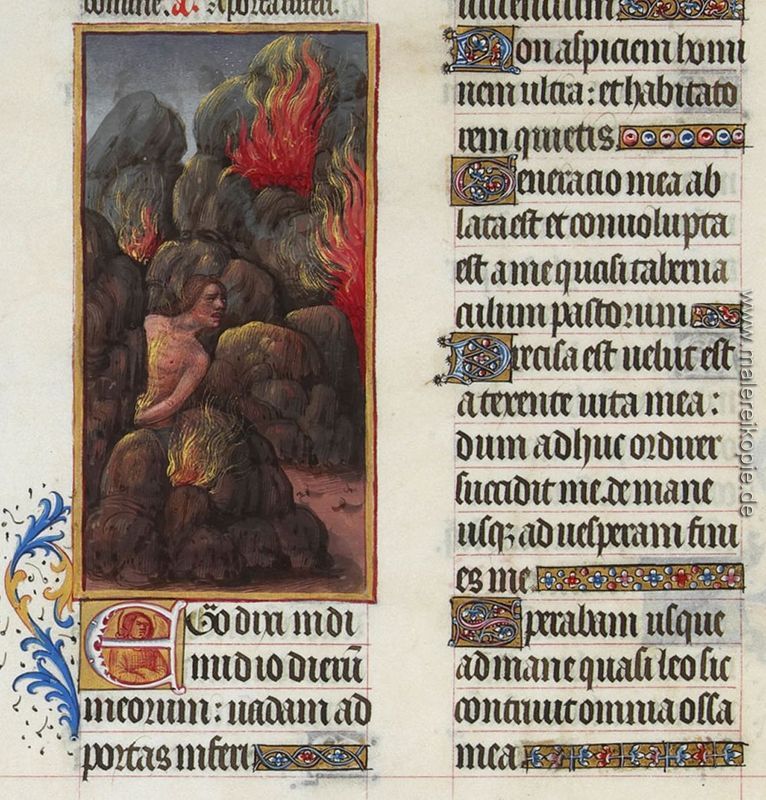 Ego dixi in di
midio dierū
meorum: vadam ad
portas inferi
viventium
Non aspiciem homi
nem ultra: et habitato
rem quietis.
Generacio mea ab
lata est et convolupta
est a me quasi taberna
culum pastorum
Precisa est velut est
a texente vita mea:
dum adhuc ordirer
succidit me. de mane
usqꝫ ad vesperam fini
es me.
Sperabam usque
ad mane quasi leo sic
contrivit omnia ossa
mea
www.malereikopie.de